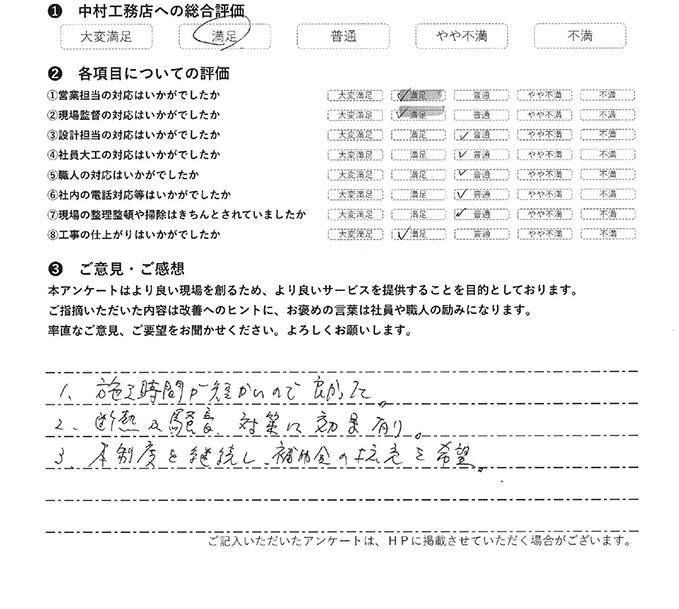 ❶ 中村工務店への総合評価
大変満足 満足 普通 やや不満 不満
❷ 各項目についての評価
①営業担当の対応はいかがでしたか 大変満足 満足 普通 やや不満 不満
②現場監督の対応はいかがでしたか 大変満足 満足 普通 やや不満 不満
③設計担当の対応はいかがでしたか 大変満足 満足 普通 やや不満 不満
④社員大工の対応はいかがでしたか 大変満足 満足 普通 やや不満 不満
⑤職人の対応はいかがでしたか 大変満足 満足 普通 やや不満 不満
⑥社内の電話対応等はいかがでしたか 大変満足 満足 普通 やや不満 不満
⑦現場の整理整頓や掃除はきちんとされていましたか 大変満足 満足 普通 やや不満 不満
⑧工事の仕上がりはいかがでしたか 大変満足 満足 普通 やや不満 不満
❸ ご意見・ご感想
本アンケートはより良い現場を創るため、より良いサービスを提供することを目的としております。
ご指摘いただいた内容は改善へのヒントに、お褒めの言葉は社員や職人の励みになります。
率直なご意見、ご要望をお聞かせください。よろしくお願いします。
1、施工時間が短かいので良かった。
2、断熱及騒音対策に効果有り。
3、本制度を継続し、補助金の拡充を希望。
ご記入いただいたアンケートは、HPに掲載させていただく場合がございます。